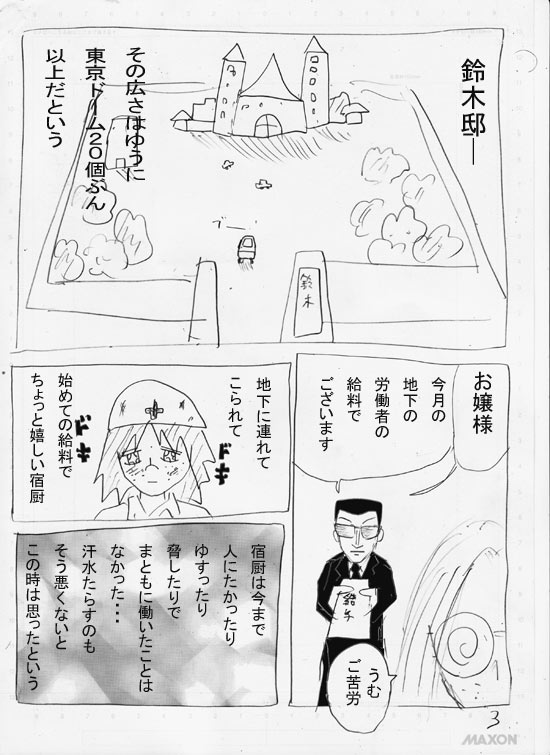 鈴木邸―
その広さはゆうに
東京ドーム20個ぶん
以上だという
ブーー
鈴木
お嬢様
今月の
地下の
労働者の
給料で
ございます
給与
うむ
ご苦労
地下に連れて
こられて
ドキ
ドキ
始めての給料で
ちょっと嬉しい宿厨
宿厨は今まで
人にたかったり
ゆすったり
脅したりで
まともに働いたことは
なかった・・・
汗水たらすのも
そう悪くないと
この時は思ったという
3
MAXON